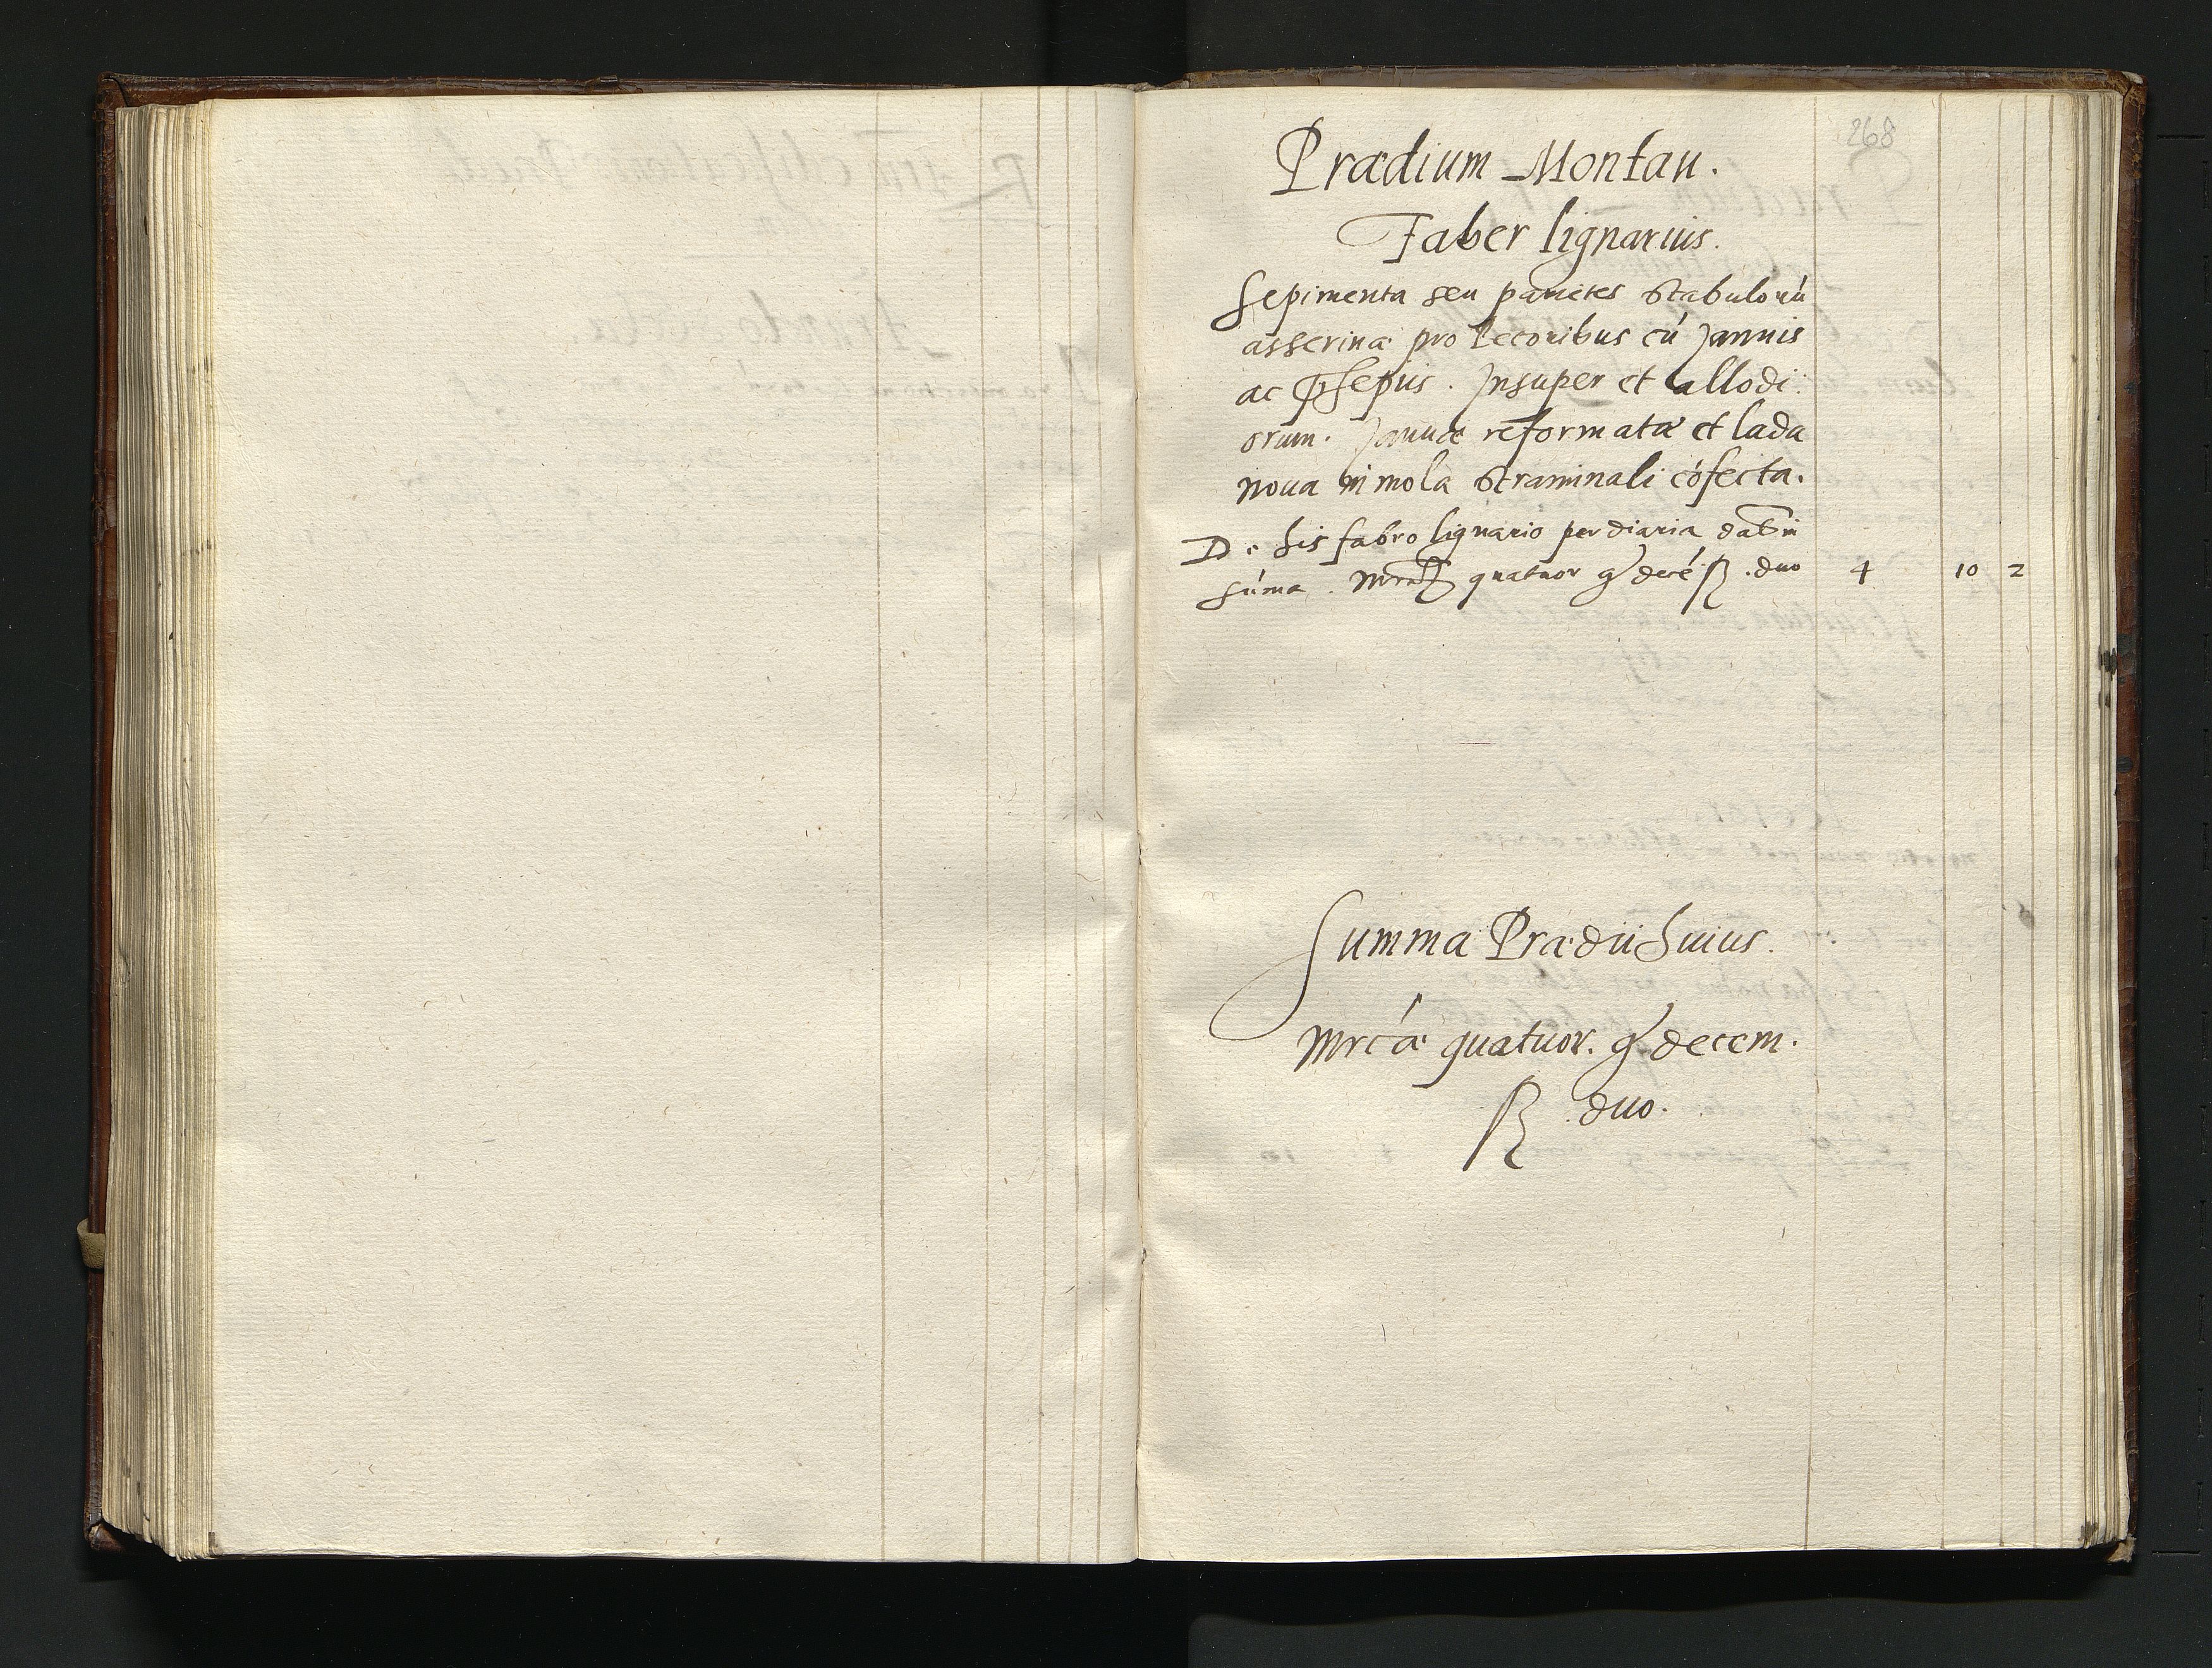 268
Prædium Montau.
Faber lignarius.
Sepimenta seu parietes stabulorũ
asserinæ pro Pecoribus cũ Januis
ac p̱sepiis. Insuper et allodi:
orum. Januæ reformatæ et lada
noua in mola straminali cõfecta.
De his fabro lignario per diaria datur in
sũma. quatuor g̃ decẽ ß. duo 4 10 2
Summa Prædii huius.
Mrcæ quatuor. g̃ decem.
ß. duo.